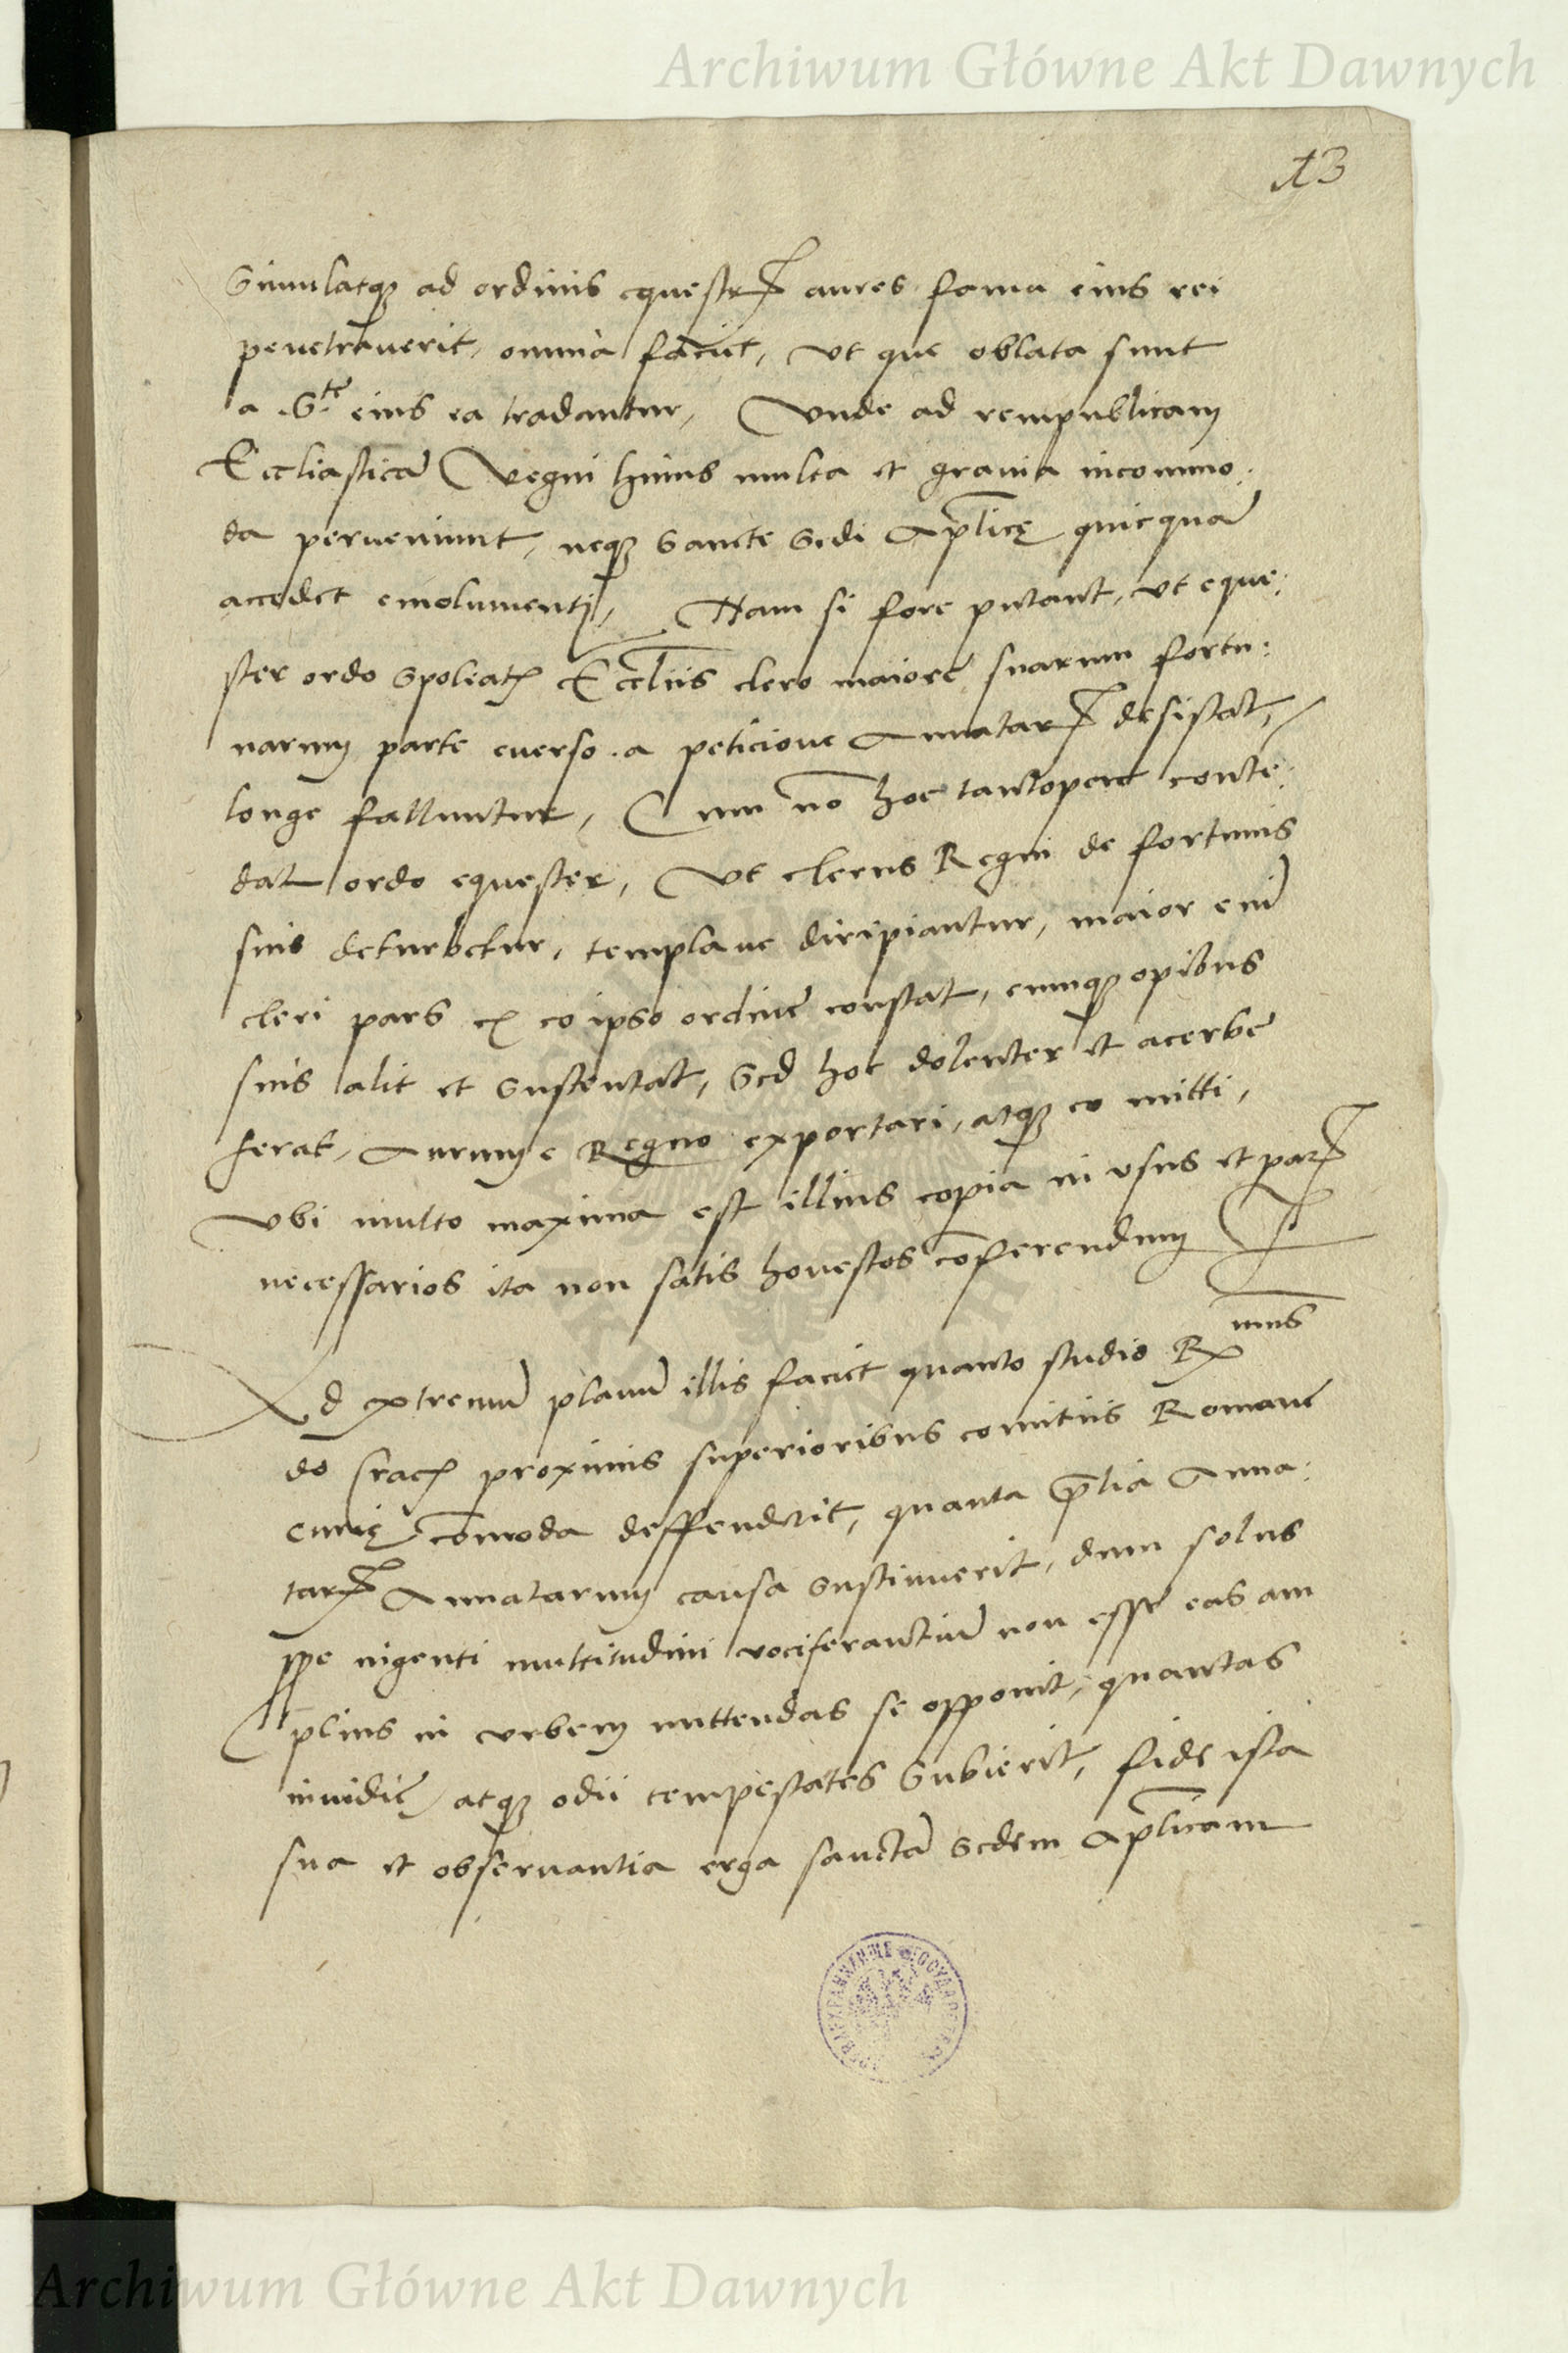 Archiwum Główne Akt Dawnych
13
Simulatq₃ ad ordinis equestrꝭ aures fama eius rei
penetraverit, omnia faciet, vt que oblata sunt
a S.te eius ea tradantur, Vnde ad rempublicam
Eccliasticā Regni huius multa et grauia incommo:
da perueniunt, neq₃ Sancte Sedi Ap̄licę quicquā
accedet emolumenti, Nam si fore putant, vt eque:
ster ordo spoliatꝭ Eccl̄iis clero maiorē suarum fortu:
narum parte euerso a peticione Annatarꝝ desistat,
longe falluntur, Cum nō hoc tantopere conte:
dat ordo equester, Vt clerus Regni de fortunis
suis deturbetur, templa ue diripiantur, maior enī
cleri pars ex eo ipso ordine constat, eumq₃ opibus
suis alit et sustentat, Sed hoc dolenter et acerbe
ferat, Aurum e Regno exportari, atq₃ eo mitti,
vbi multo maxima est illius copia in vsus et parꝝ
necessarios ita non satis honestos cōferendum
Ad extremū planū illis faciet quanto studio Rx mus
do Cracꝭ proximis superioribus comitiis Romane
curię cōmoda deffenderit, quanta p̄lia Anna:
tarꝝ Annatarum causa sustinuerit, dum solus
ꝓpe ingenti multitudini vociferantiū non esse eas am
plius in vrbem mittendas se opponit, quantas
inuidię atq₃ odii tempestates Subierit, fide ista
sua et obseruantia erga sanctā Sedem Ap̄licam
Archiwum Główne Akt Dawnych